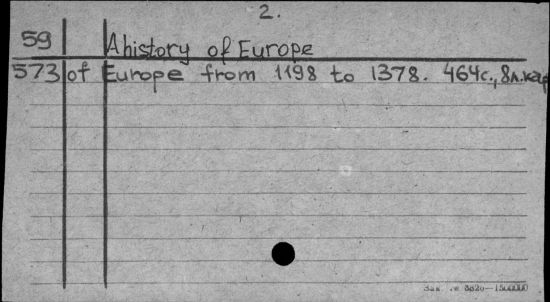 2.
59 A history of Europe
573 of Europe from 1198 to 1378. 464с., 8л.кар
Зак. 8820—1500000